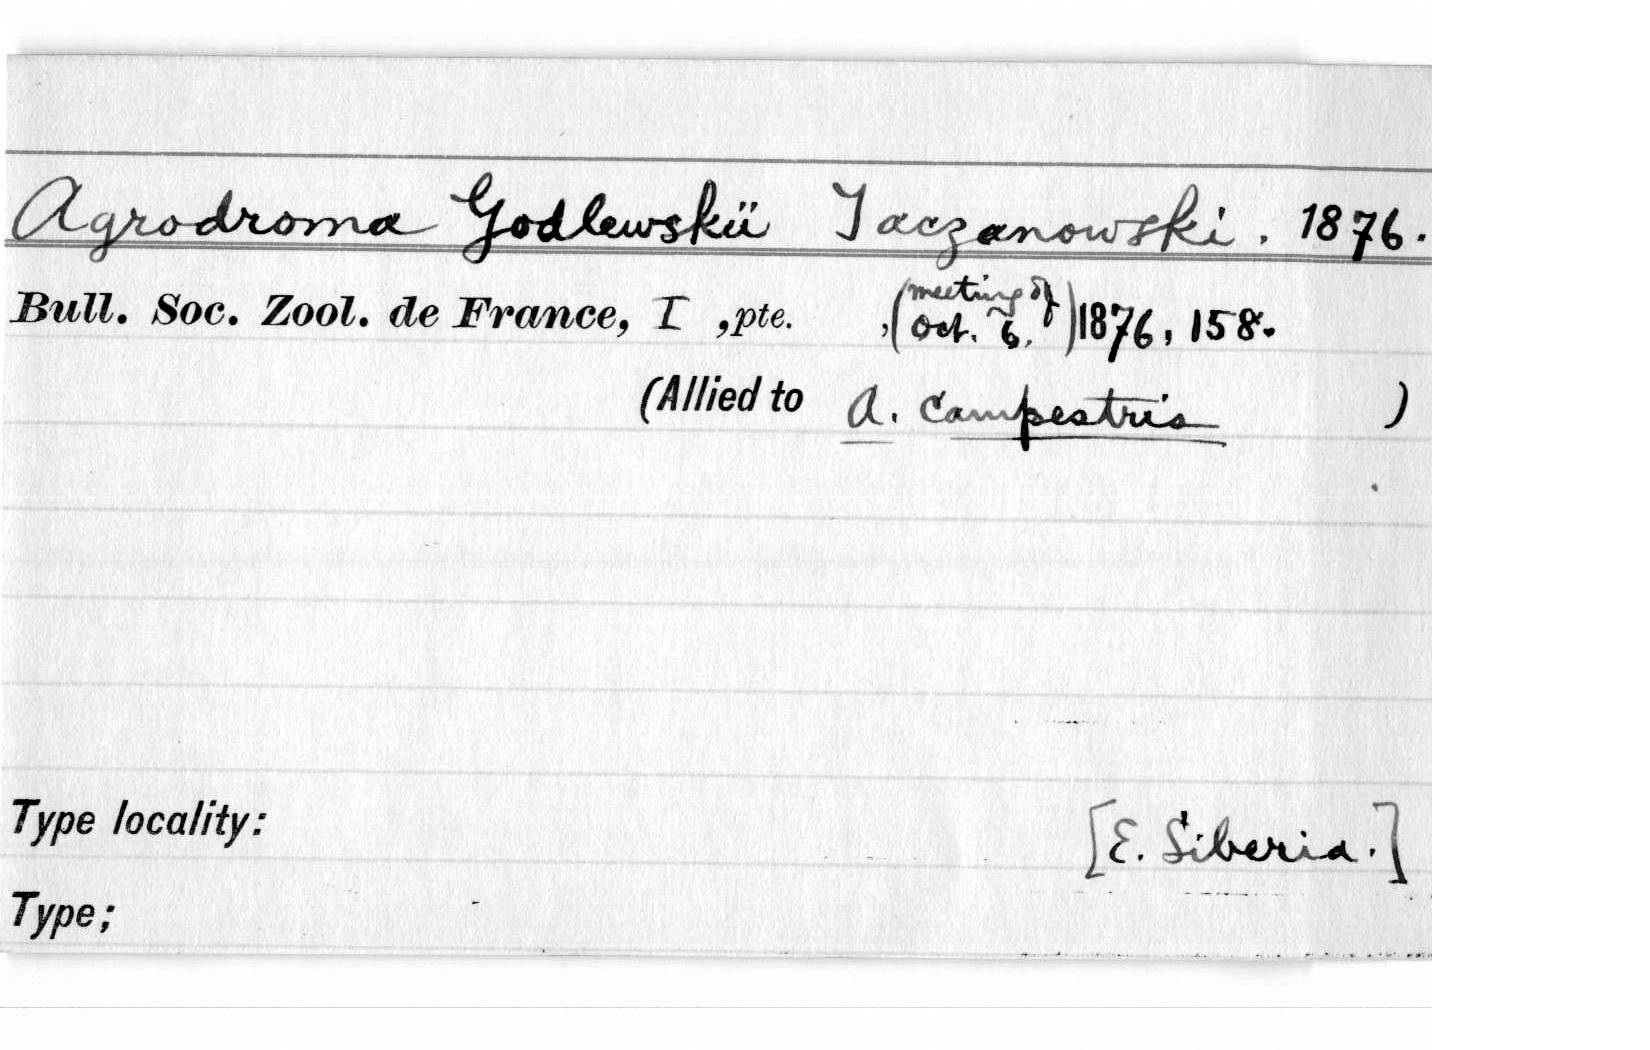 Agrodroma Godlewskii Taczanowski. 1876.
Bull. Soc. Zool. de France, I ,pte. ,(meeting of Oct. 6.) 1876, 158.
(Allied to A. campestris )
Type locality: [E. Siberia.]
Type;